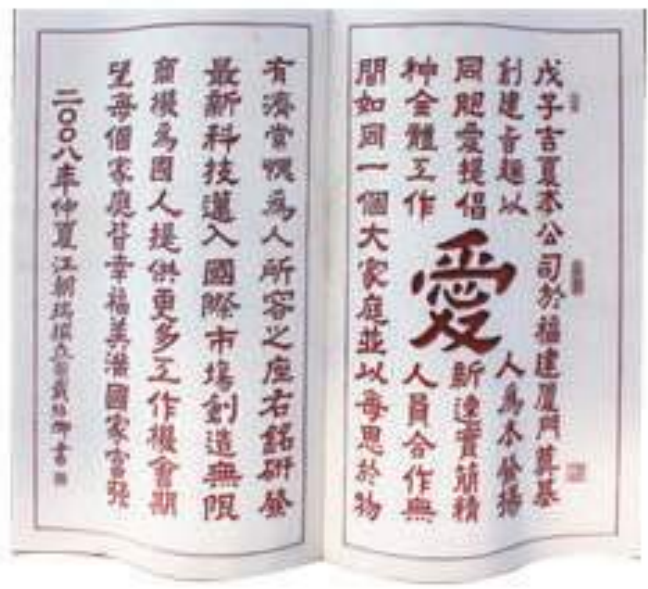 戊子吉夏本公司於福建厦門奠基
創建旨趣以人為本發揚
同胞愛提倡新速實簡精
神全體工作人員合作無
愛
間如同一個大家庭並以每思於物
有濟常懷為人所容之座右銘研發
最新科技邁入國際市場創造無限
商機為國人提供更多工作機會期
望每個家庭皆幸福美滿國家富強
二〇〇八年仲夏江朝瑞撰書